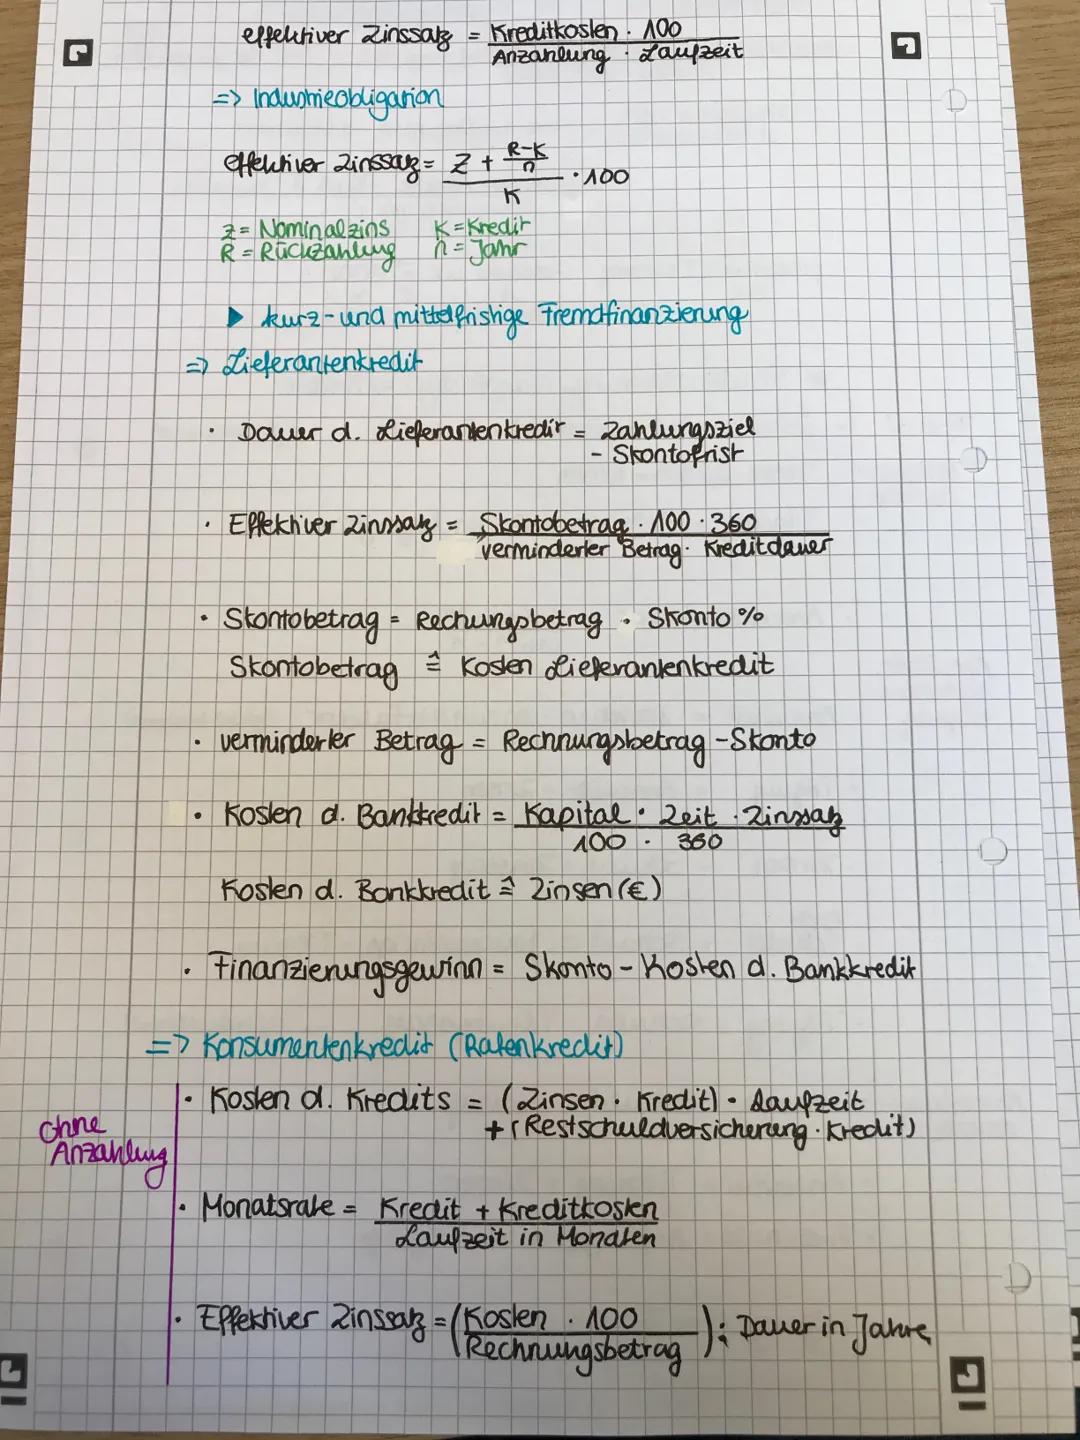 effektiver Zinssatz = Kreditkosten · 100
Anzahlung · Laufzeit
=> Industrieobligation
effektiver Zinssatz = Z + R-K
n
K
· 100
Z = Nominalzins K = Kredit
R = Rückzahlung n = Jahr
▶ kurz- und mittelfristige Fremdfinanzierung
=> Lieferantenkredit
· Dauer d. Lieferantenkredit = Zahlungsziel
- Skontofrist
· Effektiver Zinssatz = Skontobetrag · 100 · 360
verminderter Betrag · Kreditdauer
· Skontobetrag = Rechungsbetrag · Skonto %
Skontobetrag ≙ Kosten Lieferantenkredit
· verminderter Betrag = Rechnungsbetrag - Skonto
· Kosten d. Bankkredit = Kapital · Zeit · Zinssatz
100 · 360
Kosten d. Bankkredit ≙ Zinsen (€)
· Finanzierungsgewinn = Skonto - Kosten d. Bankkredit
=> Konsumentenkredit (Ratenkredit)
· Kosten d. Kredits = (Zinsen · Kredit) · Laufzeit
+ (Restschuldversicherung · Kredit)
ohne
Anzahlung
· Monatsrate = Kredit + Kreditkosten
Laufzeit in Monaten
· Effektiver Zinssatz = (Kosten · 100
Rechnungsbetrag) : Dauer in Jahre